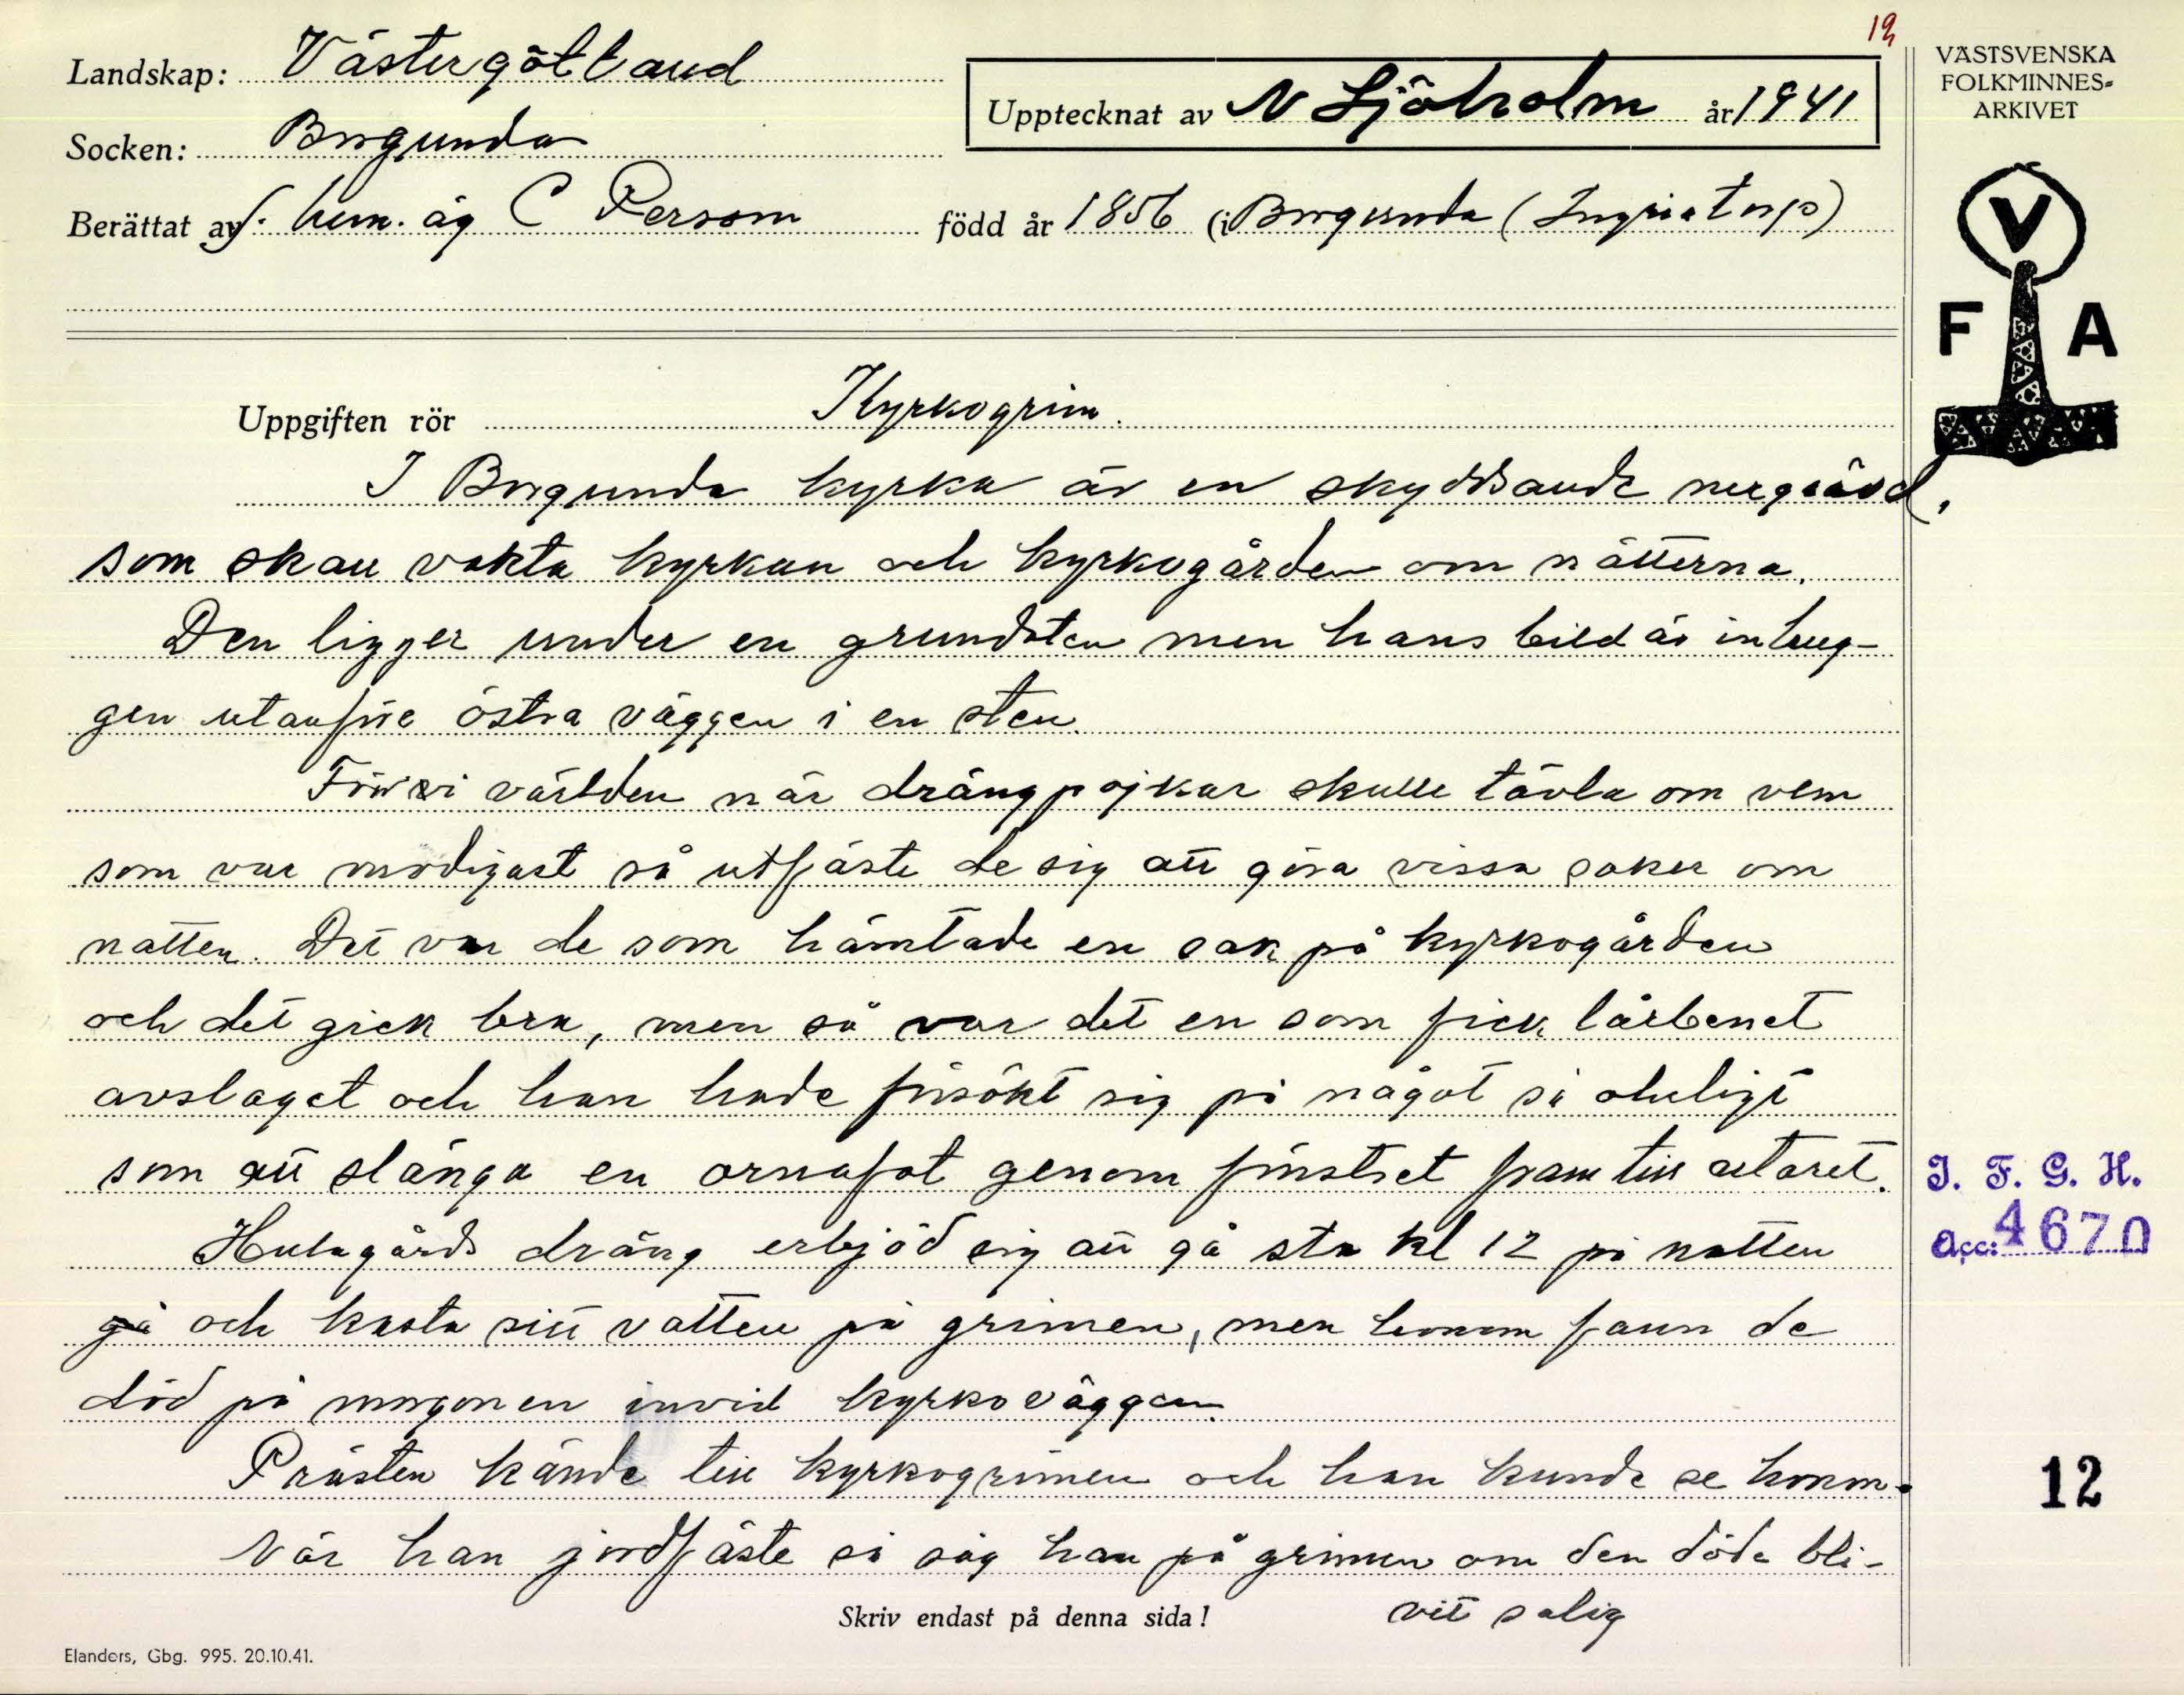 12
Landskap: Västergötland
Socken: Borgunda
Upptecknat av N Sjöholm år 1941
Berättat av f. hem. äg C Persson född år 1856 (i Borgunda (Ingriatorp)
VÄSTSVENSKA
FOLKMINNES-
ARKIVET
V
F A
Uppgiften rör Kyrkogrim.
I Borgunda kyrka är en skyddsande nergrävd,
som skall vakta kyrkan och kyrkogården om nätterna.
Den ligger under en grundsten men hans bild är inhug-
gen utanföre östra väggen i en sten.
Förr i världen när drängpojkar skulle tävla om vem
som var modigast så utfäste de sig att göra vissa saker om
natten. Det var de som hämtade en sak på kyrkogården
och det gick bra, men så var det en som fick lårbenet
avslaget och han hade försökt sig på något så oheligt
som att slänga en ornafot genom fönstret fram till altaret.
Hulagårds dräng erbjöd sig att gå sta kl 12 på natten
gå och kasta sitt vatten på grimen, men honom fann de
död på morgonen invid kyrkoväggen.
Prästen kände till kyrkogrimen och han kunde se honom.
När han jordfäste så såg han på grimen om den döde bli-
vit salig
Skriv endast på denna sida!
Elanders, Gbg. 995. 20.10.41.
I. F. G. H.
Acc: 4670
12